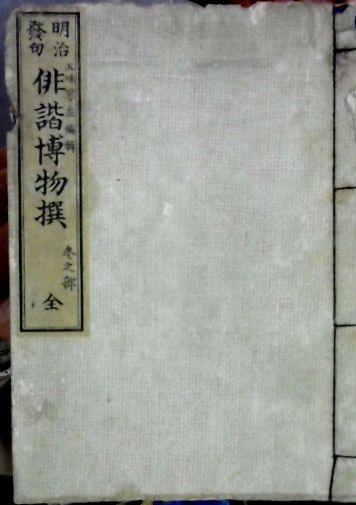 明治
發句
俳諧博物撰
編輯
冬之部
全